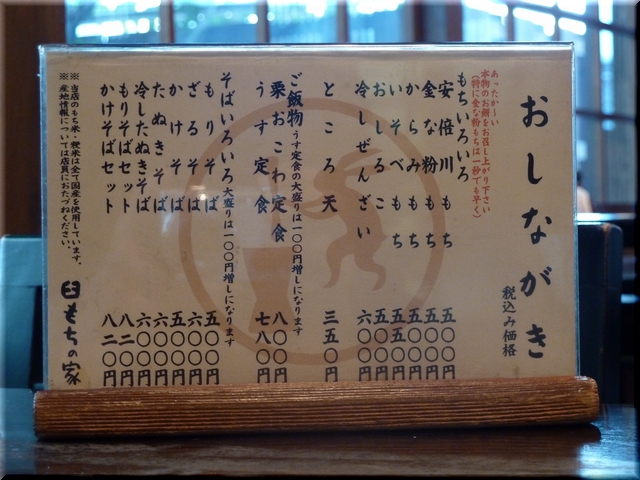 おしながき
税込み価格
あったか〜い
本物のお餅をお召し上がり下さい
(特に金な粉もちは一秒でも早く)
もちいろいろ
安倍川もち 五〇〇円
金な粉もち 五〇〇円
からみもち 五〇〇円
いそべもち 五五〇円
おしるこ 五五〇円
冷しぜんざい 六〇〇円
ところ天 三五〇円
ご飯物 うす定食の大盛りは一〇〇円増しになります
栗おこわ定食 八〇〇円
うす定食 七八〇円
そばいろいろ 大盛りは一〇〇円増しになります
もりそば 五〇〇円
ざるそば 六〇〇円
かけそば 五〇〇円
たぬきそば 六〇〇円
冷したぬきそば 六〇〇円
もりそばセット 八二〇円
かけそばセット 八二〇円
※ 当店のもち米・粳米は全て国産を使用しています。
※ 産地情報については店員におたづねください。
臼もちの家